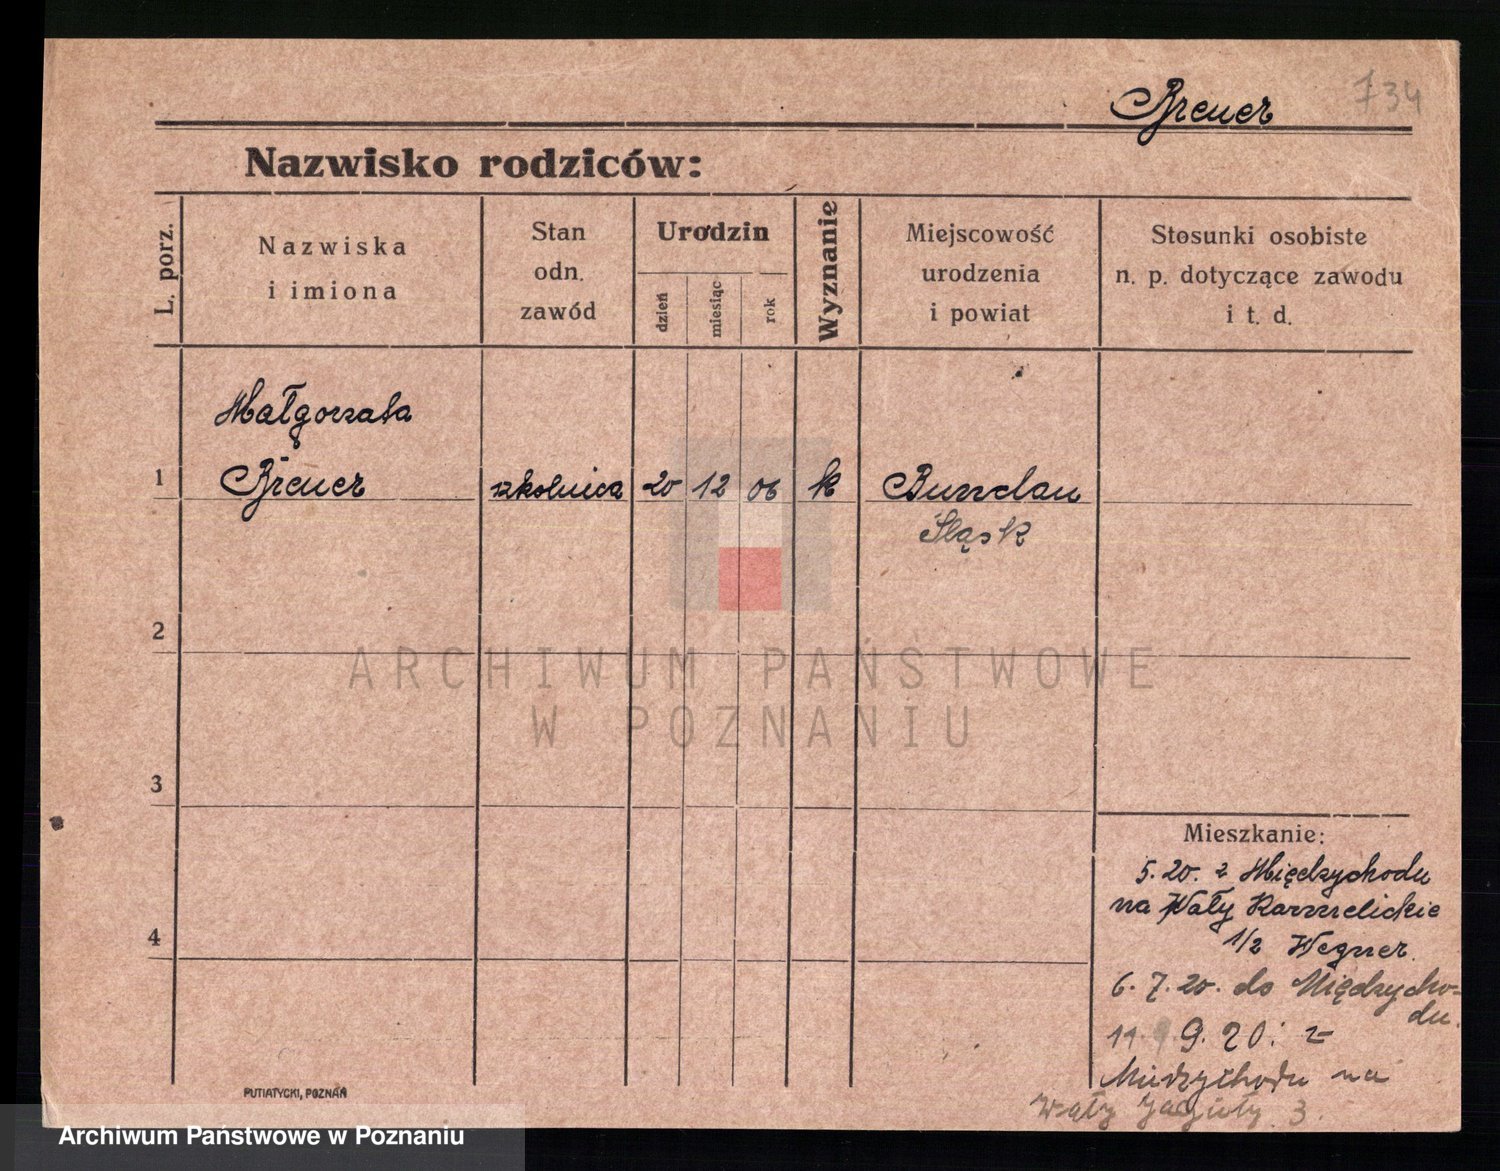 Breuer 734
Nazwisko rodziców:
L. porz.
Nazwiska
i imiona
Stan
odn.
zawód
Urodzin
dzień
miesiąc
rok
Wyznanie
Miejscowość
urodzenia
i powiat
Stosunki osobiste
n. p. dotyczące zawodu
i t. d.
Małgorzata
1 Breuer szkolnica 20 12 06 k Bunzlau
Śląsk
2
3
4
Mieszkanie:
5. 20. z Międzychodu
na Wały Karmelickie
1/2 Wegner.
6. 7. 20. do Międzycho-
du.
11. 9. 20: z
Międzychodu na
Wały Jagiełły 3.
PUTIATYCKI, POZNAŃ
ARCHIWUM PAŃSTWOWE
W POZNANIU
Archiwum Państwowe w Poznaniu